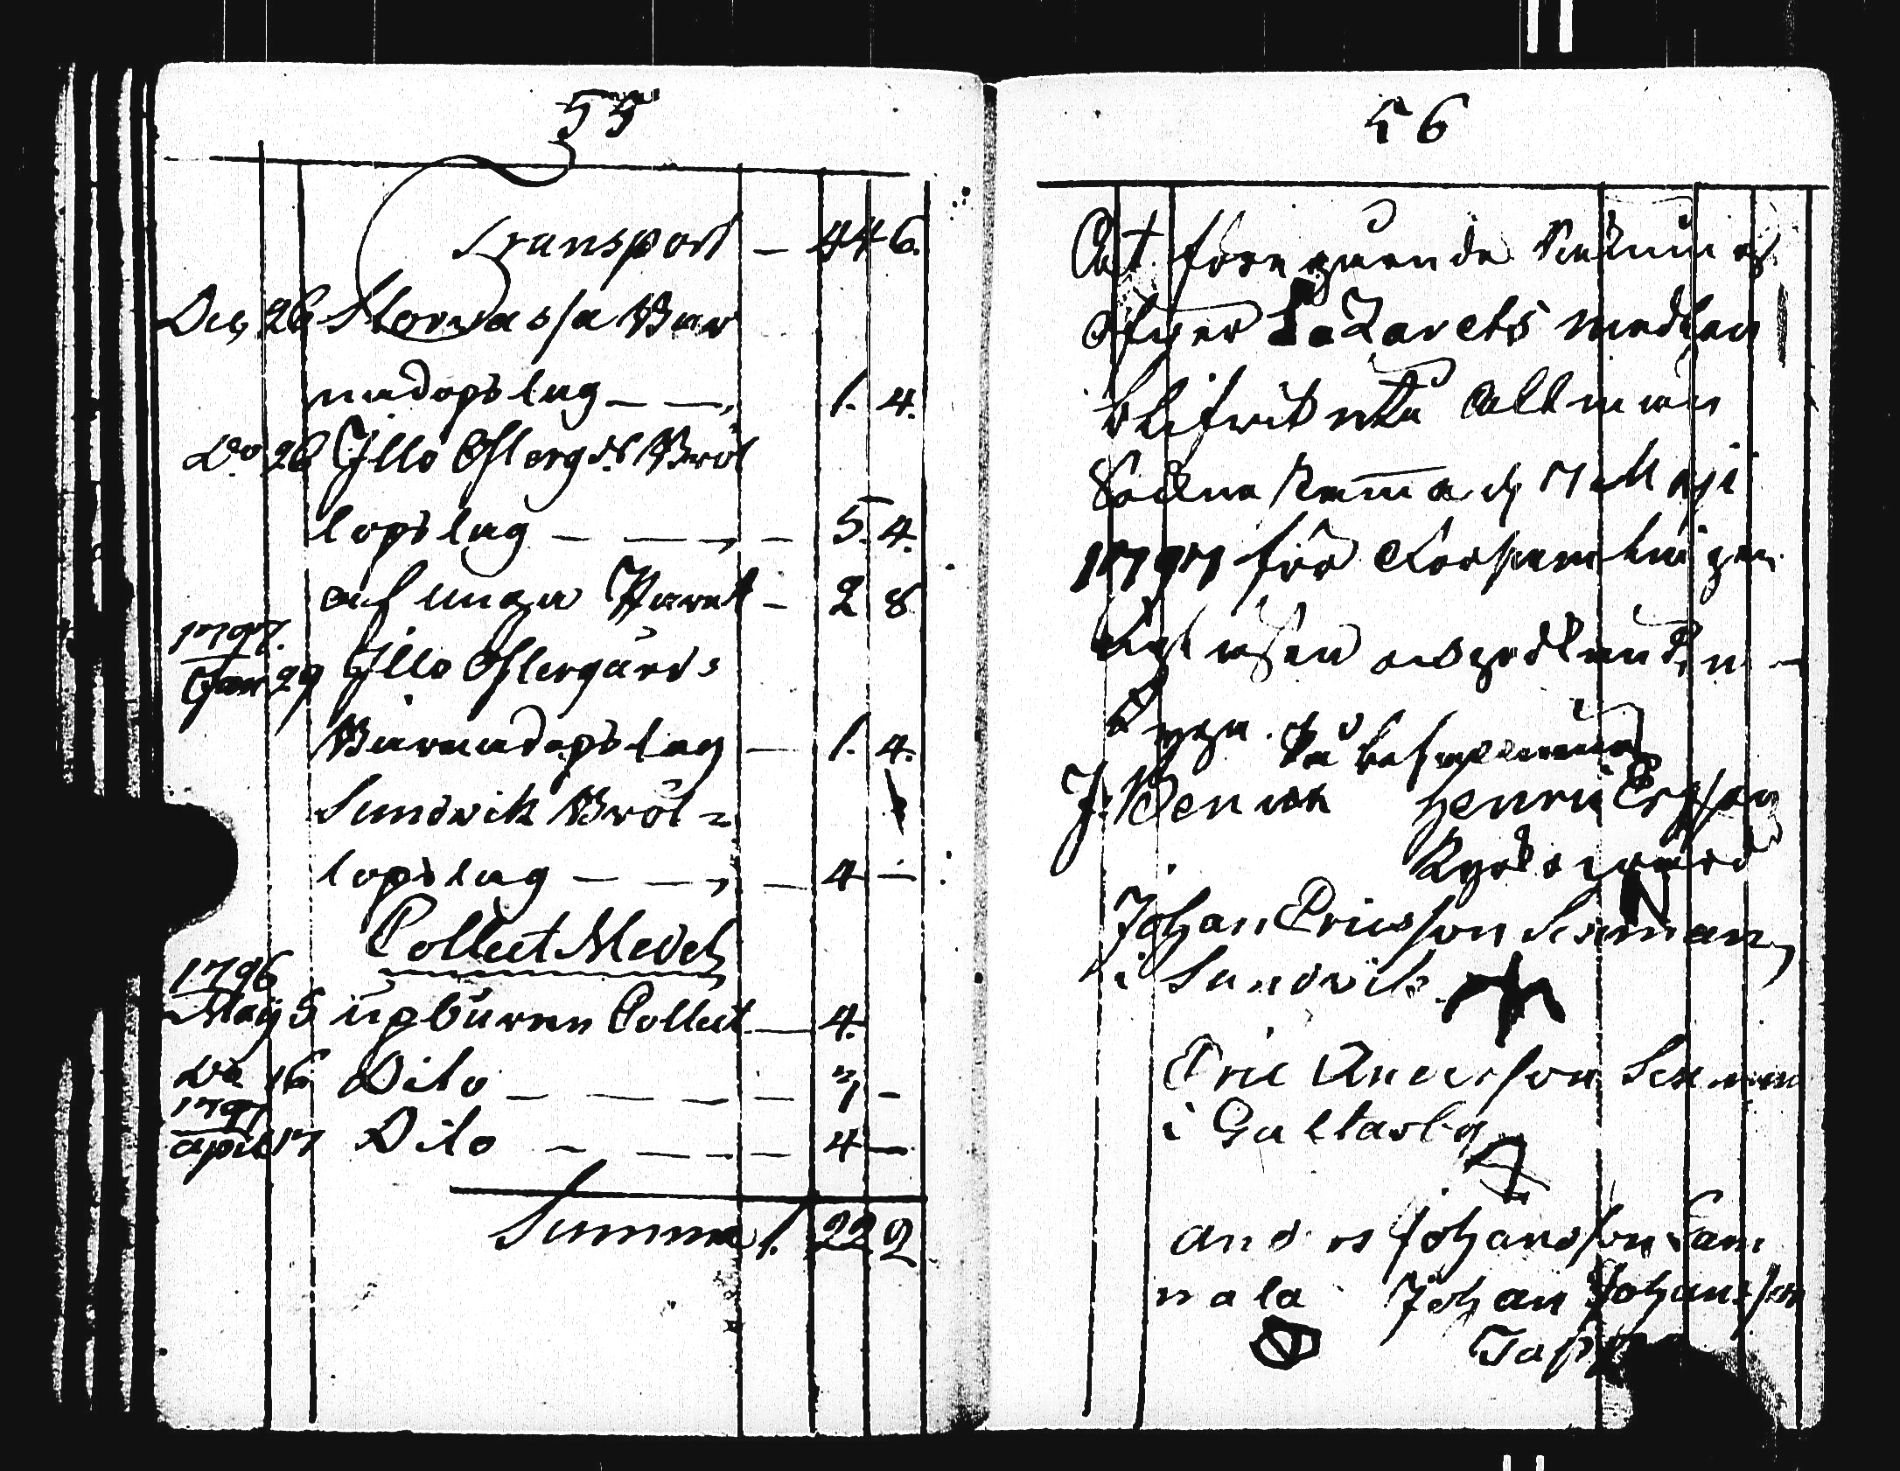 55
Transport — 44 6.
Dec, 26 Storvassa Bar
nadopslag — — 1. 4.
Do 26 Illo Östergds Bröl
lopslag — — — 5. 4.
af unga Paret — 2 8
1797.
Jan 29 Illo Östergårds
Barnadopslag — 1. 4.
Sundvik Bröl=
lopslag — — — 4 —
Collect Medel
1796
Maij 5 upburen Collect — 4.
Do 16 Dito — — — 7 —
1797
april 17 Dito — — — 4 —
Summa 1. 22 2
56
At föregående Räkning
öfver Lazarets medlen
blifvit uti allmän
Sockne stemma d. 7 Maji
1797 för Församlingen
upläsen och godkänd,
På befallning
J. Henric Ersson
Kyrkovärd
Johan Ericsson Sexman
i Sundvik
Eric Andersson Sexman
i Galtarby
Anders Johansson Sam
mala Johan Johansson